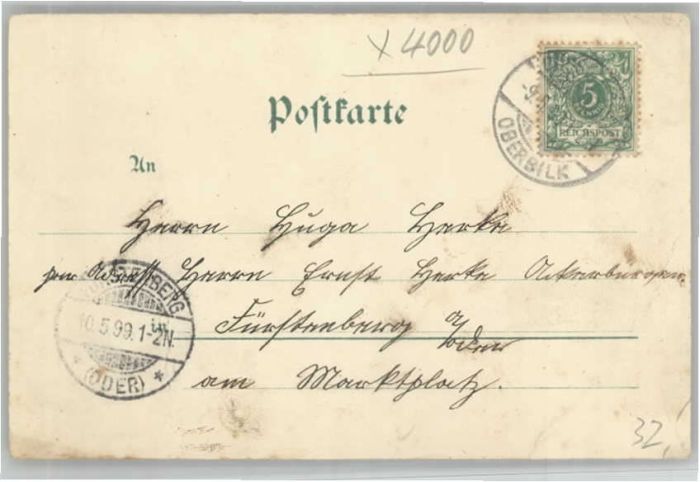 x 4000
5
REICHSPOST
OBERBILK
Postkarte
An
Herrn Huga Herke
per Adress Herrn Ernst Herke Ackerburger
in Fürstenberg a/oder
am Marktplatz.
BERG
10.5.99.1-2N.
* (ODER) *
32